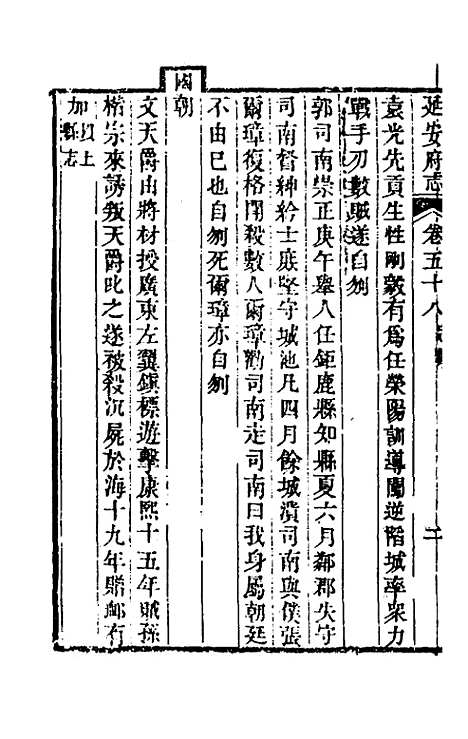 延安府志 卷五十八 二
袁光先貢生性剛毅有爲任滎陽訓導闖逆陷城率衆力
戰手刃數賊遂自刎
郭司南崇正庚午舉人任鉅鹿縣知縣夏六月鄰郡失守
司南督紳衿士庶堅守城池凡四月餘城潰司南與僕張
爾璋復格鬬殺數人爾璋勸司南走司南曰我身屬朝廷
不由已也自刎死爾璋亦自刎
國朝
文天爵由將材授廣東左翼鎮標遊擊康熙十五年賊孫
楷宗來誘叛天爵叱之遂被殺沉屍於海十九年贈䘏有
加以上縣志